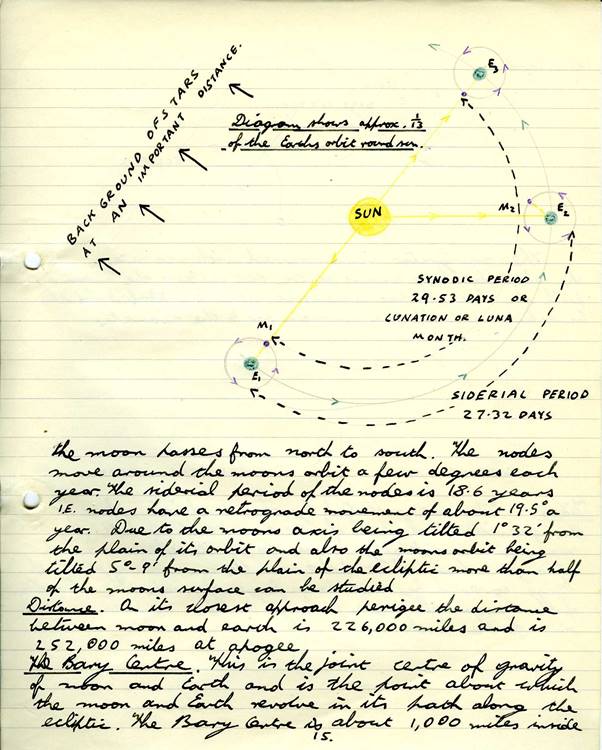 BACKGROUND OF STARS
AT AN IMPORTANT DISTANCE.
Diagram shows approx. 1/13
of the Earths orbit round sun.
E3
SUN
M2
E2
SYNODIC PERIOD
29.53 DAYS OR
LUNATION OR LUNA
MONTH.
M1
E1
SIDERIAL PERIOD
27.32 DAYS
the moon passes from north to south. The nodes
move around the moons orbit a few degrees each
year. The siderial period of the nodes is 18.6 years
I.E. nodes have a retrograde movement of about 19.5° a
year. Due to the moons axis being tilted 1° 32' from
the plain of its orbit and also the moons orbit being
tilted 5° - 9' from the plain of the ecliptic more than half
of the moons surface can be studied
Distance. On its closest approach perigee the distance
between moon and earth is 226,000 miles and is
252,000 miles at apogee
The Bary Centre. This is the joint centre of gravity
of moon and Earth and is the point about which
the moon and Earth revolve in its path along the
ecliptic. The Bary Centre is about 1,000 miles inside
15.